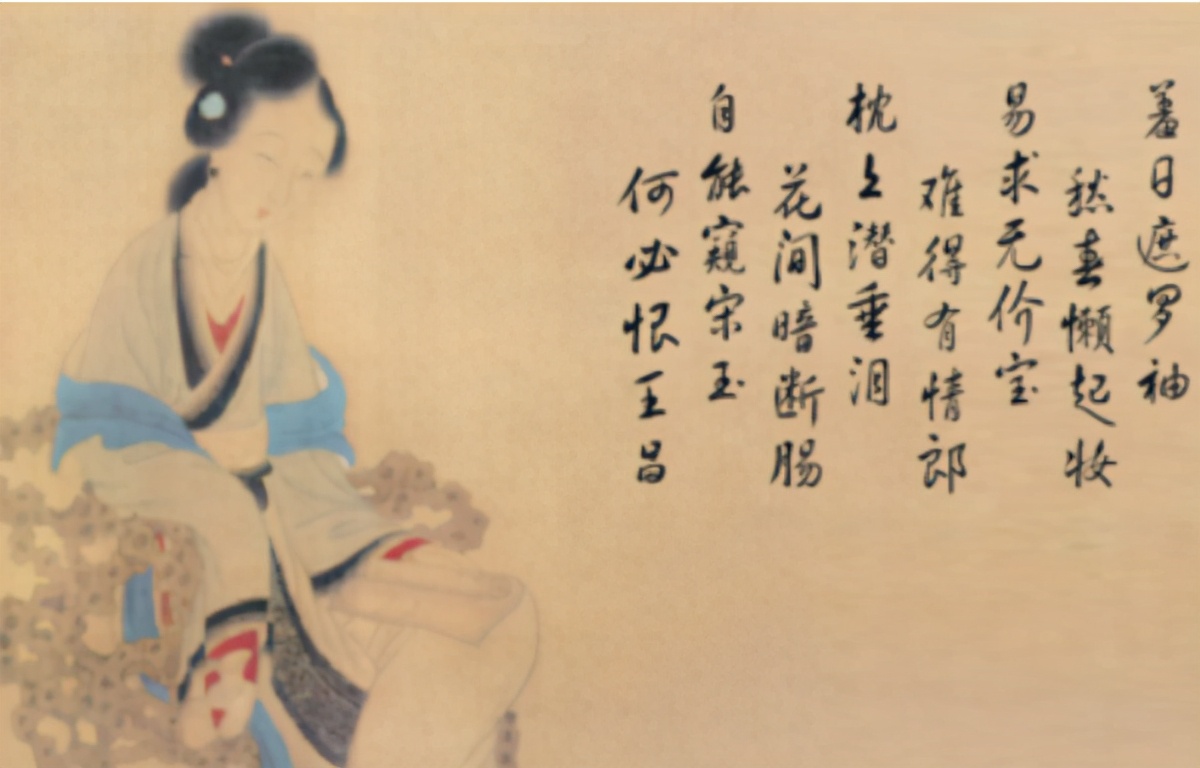 羞日遮罗袖
愁春懒起妆
易求无价宝
难得有情郎
枕上潜垂泪
花间暗断肠
自能窥宋玉
何必恨王昌